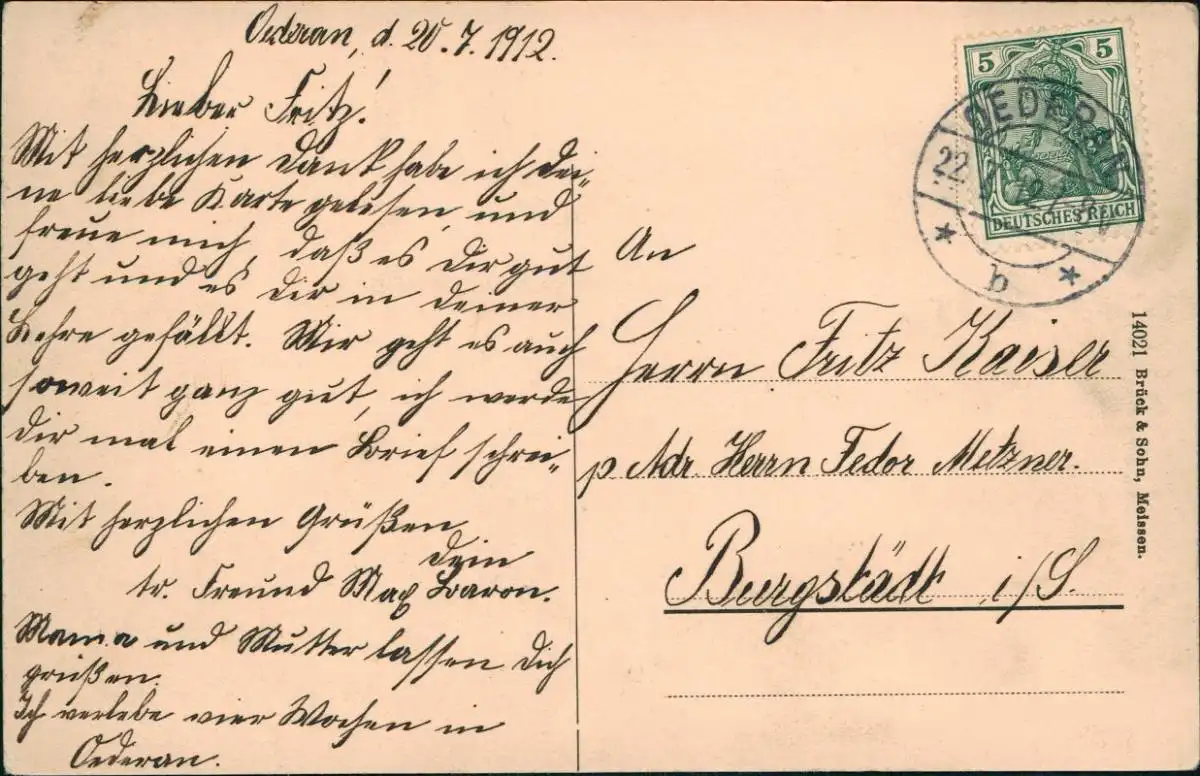 Oederan, d. 20.7.1912.
Lieber Fritz!
Mit herzlichen Dank habe ich dei-
ne liebe Karte gelesen, und
freue mich, daß es Dir gut
geht und es Dir in deiner
Lehre gefällt. Mir geht es auch
soweit ganz gut, ich werde
dir mal einen Brief schrei-
ben.
Mit herzlichen Grüßen
dein
tr. Freund Max Baron.
Mama und Mutter lassen dich
grüßen.
Ich verlebe vier Wochen in
Oederan.
5 5
DEUTSCHES REICH
OEDERAN
22.
b
An
Herrn Fritz Kaiser
p Adr Herrn Fedor Metzner.
Burgstädt i/S.
14021 Brück & Sohn, Meissen.